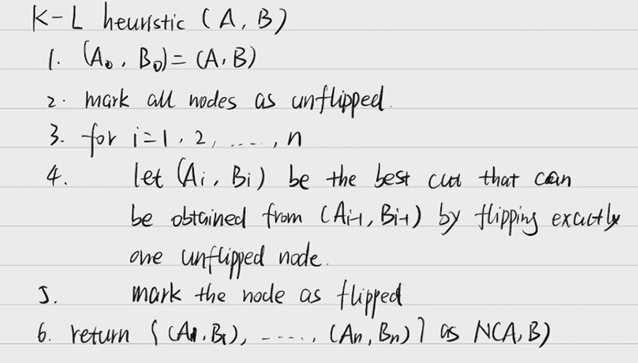 K-L heuristic (A, B)
1. (A₀, B₀) = (A, B)
2. mark all nodes as unflipped.
3. for i=1, 2, ...., n
4. let (Ai, Bi) be the best cut that can
be obtained from (Ai-1, Bi-1) by flipping exactly
one unflipped node.
5. mark the node as flipped
6. return {(A1, B1), ....., (An, Bn)} as N(A, B)